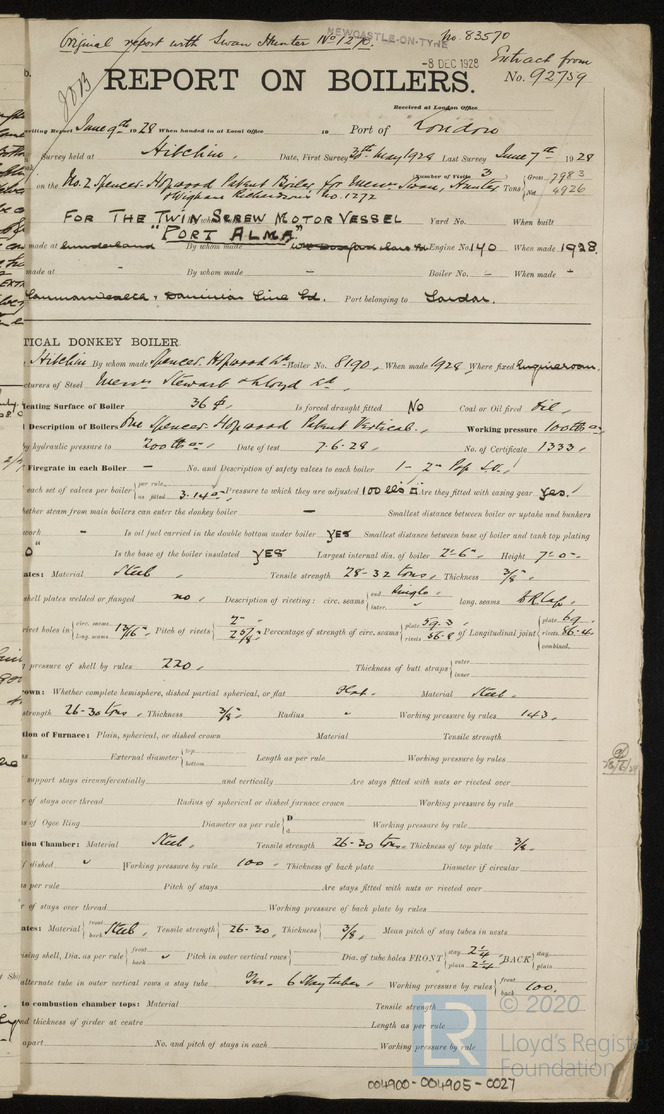 Original report with Swan Hunter No 1270. NEWCASTLE-ON-TYNE No. 83570
-8 DEC 1928 Extract from
REPORT ON BOILERS. No. 92759
Received at London Office
writing Report June 9th 1928 When handed in at Local Office 19 Port of London
Survey held at Hitchin. Date, First Survey 30th May 1928 Last Survey June 7th 1928
on the No. 2 Spencer-Hopwood Patent Boiler, for Messrs Swan, Hunter (Number of Visits 3 Tons Gross 7983 Net 4926
& Wigham Richardson No. 1272
FOR THE TWIN SCREW MOTOR VESSEL Yard No. When built
"PORT ALMA"
made at Sunderland By whom made Engine No. 140 When made 1928.
made at - By whom made - Boiler No. - When made -
Commonwealth & Dominion Line Ld. Port belonging to London.
TICAL DONKEY BOILER.
Hitchin By whom made Spencer-Hopwood Ld Boiler No. 8190, When made 1928, Where fixed Engine room.
cturers of Steel Messrs Stewart & Lloyd Ld,
eating Surface of Boiler 36 Is forced draught fitted NO Coal or Oil fired Oil,
Description of Boilers One Spencer-Hopwood Patent Vertical. Working pressure 100 lbs
by hydraulic pressure to 200 lbs Date of test 7.6.28, No. of Certificate 1333,
Firegrate in each Boiler - No. and Description of safety valves to each boiler 1- 2" Pop S.V.,
each set of valves per boiler per rule as fitted 3.14 Pressure to which they are adjusted 100 lbs Are they fitted with easing gear yes.
hether steam from main boilers can enter the donkey boiler - Smallest distance between boiler or uptake and bunkers
work - Is oil fuel carried in the double bottom under boiler YES Smallest distance between base of boiler and tank top plating
Is the base of the boiler insulated YES Largest internal dia. of boiler 2'-6", Height 7'-0",
ates: Material Steel, Tensile strength 28-32 tons, Thickness 3/8",
shell plates welded or flanged no, Description of riveting: circ. seams end Single inter. long. seams D.R. Lap,
rivet holes in circ. seams long. seams 13/16" Pitch of rivets 2" 2 5/8" Percentage of strength of circ. seams plate 59.3 rivets 56.8 of Longitudinal joint plate 69. rivets 86.4 combined.
pressure of shell by rules 220, Thickness of butt straps outer inner
own: Whether complete hemisphere, dished partial spherical, or flat Flat. Material Steel.
strength 26-30 tons, Thickness 3/8" Radius - Working pressure by rules 143.
tion of Furnace: Plain, spherical, or dished crown Material Tensile strength
External diameter top bottom Length as per rule Working pressure by rules
support stays circumferentially and vertically Are stays fitted with nuts or riveted over
r of stays over thread Radius of spherical or dished furnace crown Working pressure by rule
s of Ogee Ring Diameter as per rule D d Working pressure by rule
tion Chamber: Material Steel, Tensile strength 26-30 tons. Thickness of top plate 3/8.
f dished Working pressure by rule 100, Thickness of back plate Diameter if circular
s per rule Pitch of stays Are stays fitted with nuts or riveted over
r of stays over thread Working pressure of back plate by rules
ates: Material front back Steel, Tensile strength 26-30, Thickness 3/8, Mean pitch of stay tubes in nests
ising shell, Dia. as per rule front back Pitch in outer vertical rows Dia. of tube holes FRONT stay 2 1/4 plain 2 1/4 BACK stay plain
alternate tube in outer vertical rows a stay tube Yes- 6 Stay tubes, Working pressure by rules front back 100,
to combustion chamber tops: Material Tensile strength
nd thickness of girder at centre Length as per rule
apart No. and pitch of stays in each Working pressure by rule
LR © 2020
Lloyd's Register
Foundation
004900-004905-0027